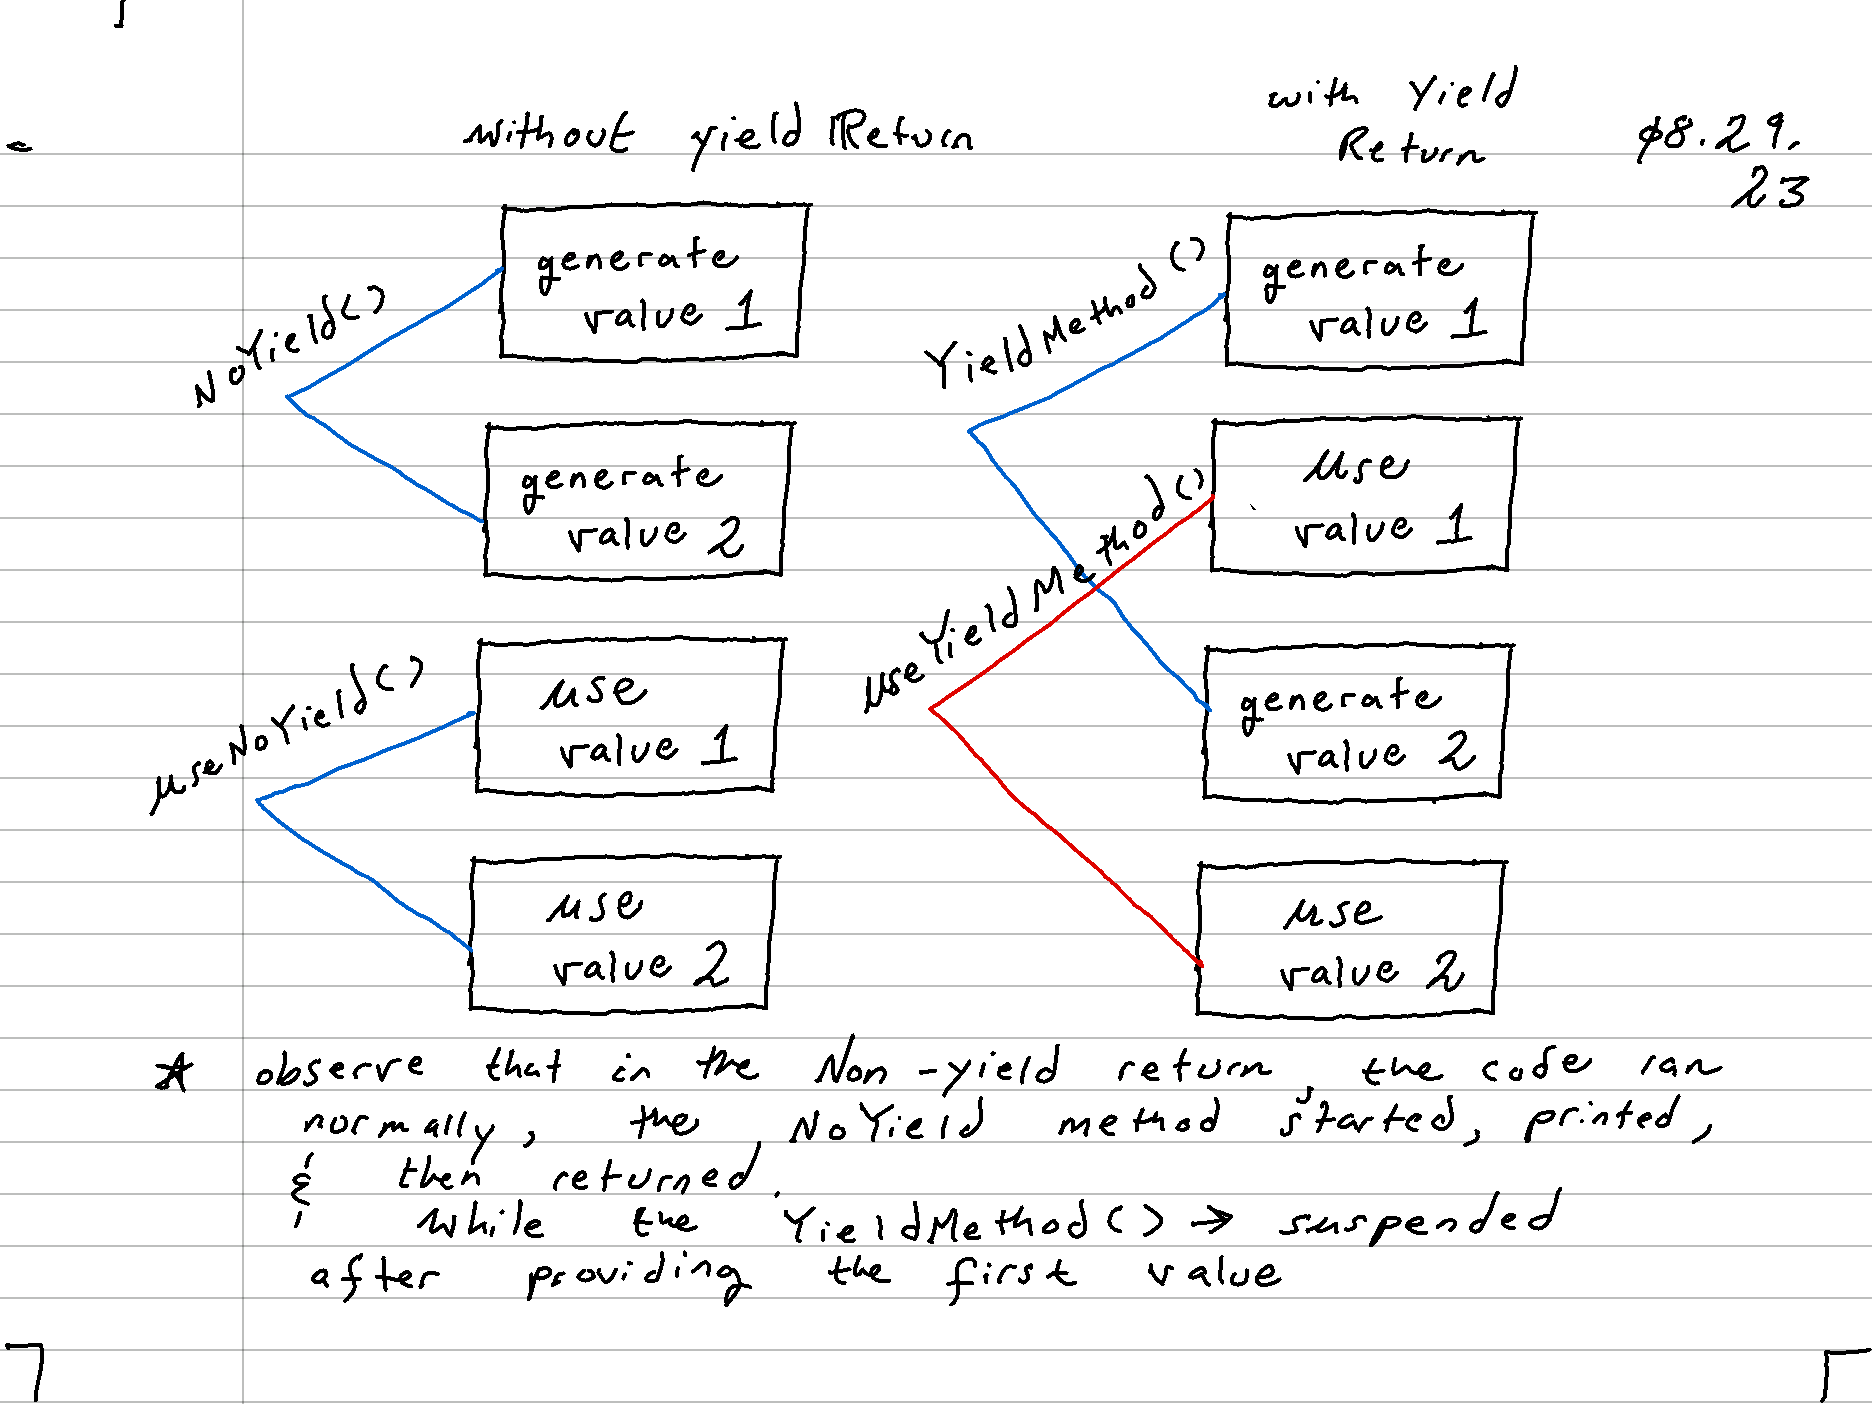 without yield Return
with Yield
Return
08.29.
23
NoYield()
generate
value 1
generate
value 2
useNoYield()
use
value 1
use
value 2
YieldMethod()
generate
value 1
useYieldMethod()
use
value 1
generate
value 2
use
value 2
☆ observe that in the Non-yield return, the code ran
normally, the NoYield method started, printed,
& then returned.
while the YieldMethod() → suspended
after providing the first value